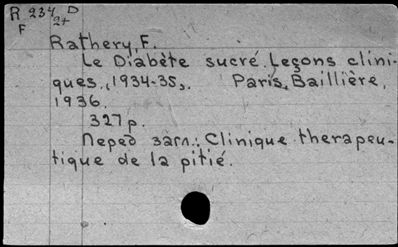 R 234 D
F 27
Rathery, F.
Le Diabète sucré. Leçons clini-
ques, (1934-35). Paris, Baillière,
1936.
327 p.
Перед загл.: Clinique therapeu-
tique de la pitié.